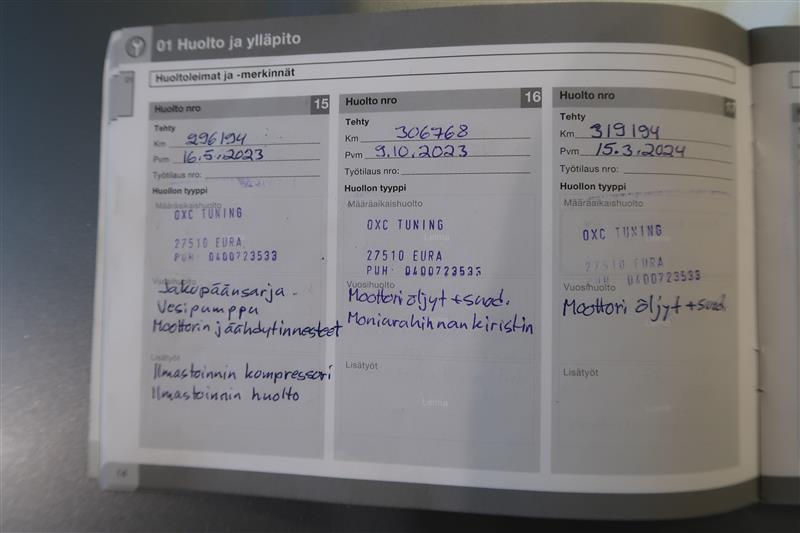 01 Huolto ja ylläpito
Huoltoleimat ja -merkinnät
Huolto nro 15
Tehty
Km 296194
Pvm 16.5.2023
Työtilaus nro:
Huollon tyyppi
Määräaikaishuolto
OXC TUNING
27510 EURA
PUH. 0400723533
Vuosihuolto
Jakopäänsarja
Vesipumppu
Moottorin jäähdytinnesteet
Lisätyöt
Ilmastoinnin kompressori
Ilmastoinnin huolto
Huolto nro 16
Tehty
Km 306768
Pvm 9.10.2023
Työtilaus nro:
Huollon tyyppi
Määräaikaishuolto
OXC TUNING
Leima
27510 EURA
PUH. 0400723533
Vuosihuolto
Moottoriöljyt + suod.
Moniurahihnan kiristin
Lisätyöt
Leima
Huolto nro 17
Tehty
Km 319194
Pvm 15.3.2024
Työtilaus nro:
Huollon tyyppi
Määräaikaishuolto
OXC TUNING
27510 EURA
PUH. 0400723533
Vuosihuolto
Moottori öljyt + suod.
Lisätyöt
Leima